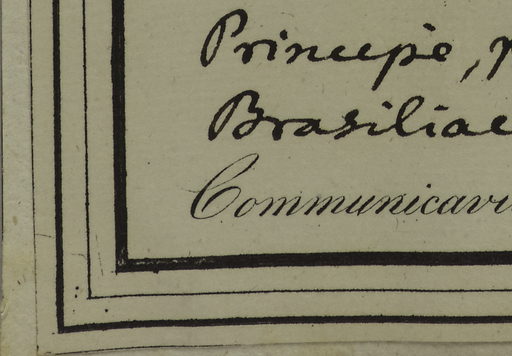 Principe, p
Brasiliae
Communicavi